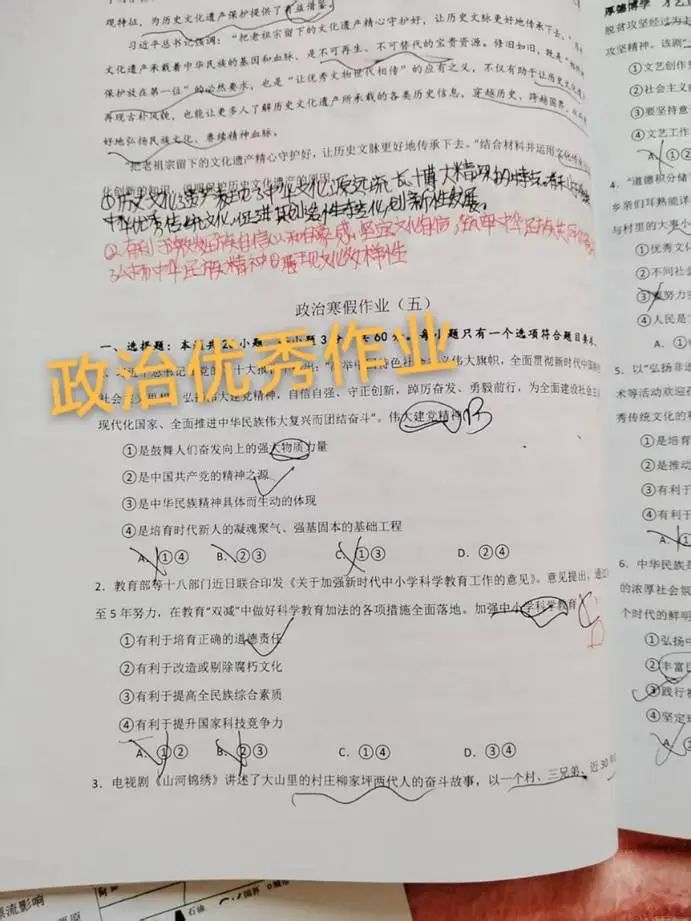 观特征，为历史文化遗产保护提供了有益借鉴。
习近平总书记强调：“把老祖宗留下的文化遗产精心守护好，让历史文脉更好地传承下去。”
文化遗产承载着中华民族的基因和血脉，是不可再生、不可替代的宝贵资源。修旧如旧，既是
保护放在第一位”的必然要求，也是“让优秀文物世代相传”的应有之义，不仅有助于让历史文化
再现古朴风貌，也能让更多人了解历史文化遗产所承载的各类历史信息，穿越历史，跨越国界，
好地弘扬民族文化、赓续精神血脉。
“把老祖宗留下的文化遗产精心守护好，让历史文脉更好地传承下去。”结合材料并运用文化传承
化创新的知识，说明保护历史文化遗产的原因。
①历史文化遗产展现了中华文化源远流长、博大精深的特点。有
中华优秀传统文化，促进其创造性转化、创新性发展。
②有利于增强民族自信心和自豪感，坚定文化自信，
弘扬中华民族精神 展现文化多样性
政治寒假作业（五）
一、选择题：本 共2 小题 小题3分 共60 小题只有一个选项符合题目要求。
政治优秀作业
社会主义思想，弘扬伟大建党精神，自信自强、守正创新，踔厉奋发、勇毅前行，为全面建设社会主
现代化国家、全面推进中华民族伟大复兴而团结奋斗”。伟大建党精神 B
①是鼓舞人们奋发向上的强大物质力量
②是中国共产党的精神之源
③是中华民族精神具体而生动的体现
④是培育时代新人的凝魂聚气、强基固本的基础工程
A. ①④ B. ②③ C. ①③ D. ②④
2．教育部等十八部门近日联合印发《关于加强新时代中小学科学教育工作的意见》。意见提出，通过
至5年努力，在教育“双减”中做好科学教育加法的各项措施全面落地。加强中小学科学教育
①有利于培育正确的道德责任
②有利于改造或剔除腐朽文化
③有利于提高全民族综合素质
④有利于提升国家科技竞争力
A. ①② B. ②③ C. ①④ D. ③④
3．电视剧《山河锦绣》讲述了大山里的村庄柳家坪两代人的奋斗故事，以一个村、三兄弟、近30
厚德博学
脱贫攻坚经过
攻坚精神。该剧
①文艺创作
②社会主义
③要坚持意
④文艺工作
A. ①②
4．“道德积分储
乡亲们耳熟能详
与村里的大事小
①优秀文化
②不同社会
③ 努力
④人民是
A. ①
5．以“弘扬非遗
术等活动欢迎
秀传统文化的
①是培育
②是推动
③有利于
④有利于
A. ①
6．中华民族是
的浓厚社会氛
个时代的鲜明
①弘扬中
②丰富
③践行
④坚定
A.
流影响
石油